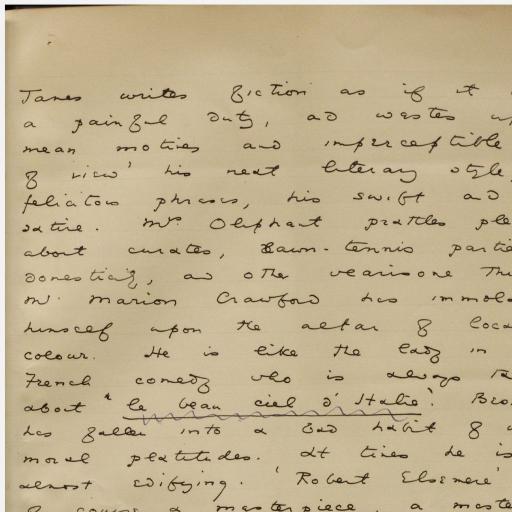 James writes fiction as if it
a painful duty, and wastes up
mean motives and imperceptible
of view' his neat literary style,
felicitous phrases, his swift and
satire. Mrs Oliphant prattles ple
about curates, lawn-tennis partie
domesticity, and other wearisome thi
Mr. Marion Crawford has immola
himself upon the altar of loca
colour. He is like the lady in
French comedy who is always ta
about "le beau ciel d'Italie". Bes
has fallen into a bad habit of u
moral platitudes. At times he is
almost edifying. 'Robert Elsmere'
of course a masterpiece, a maste